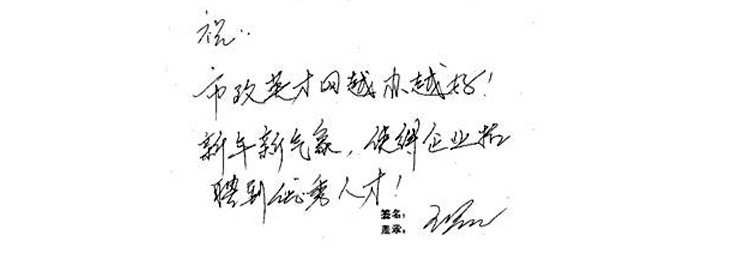 祝:
市政英才网越办越好!
新年新气象,使得企业招
聘到优秀人才!
签名:
盖章: